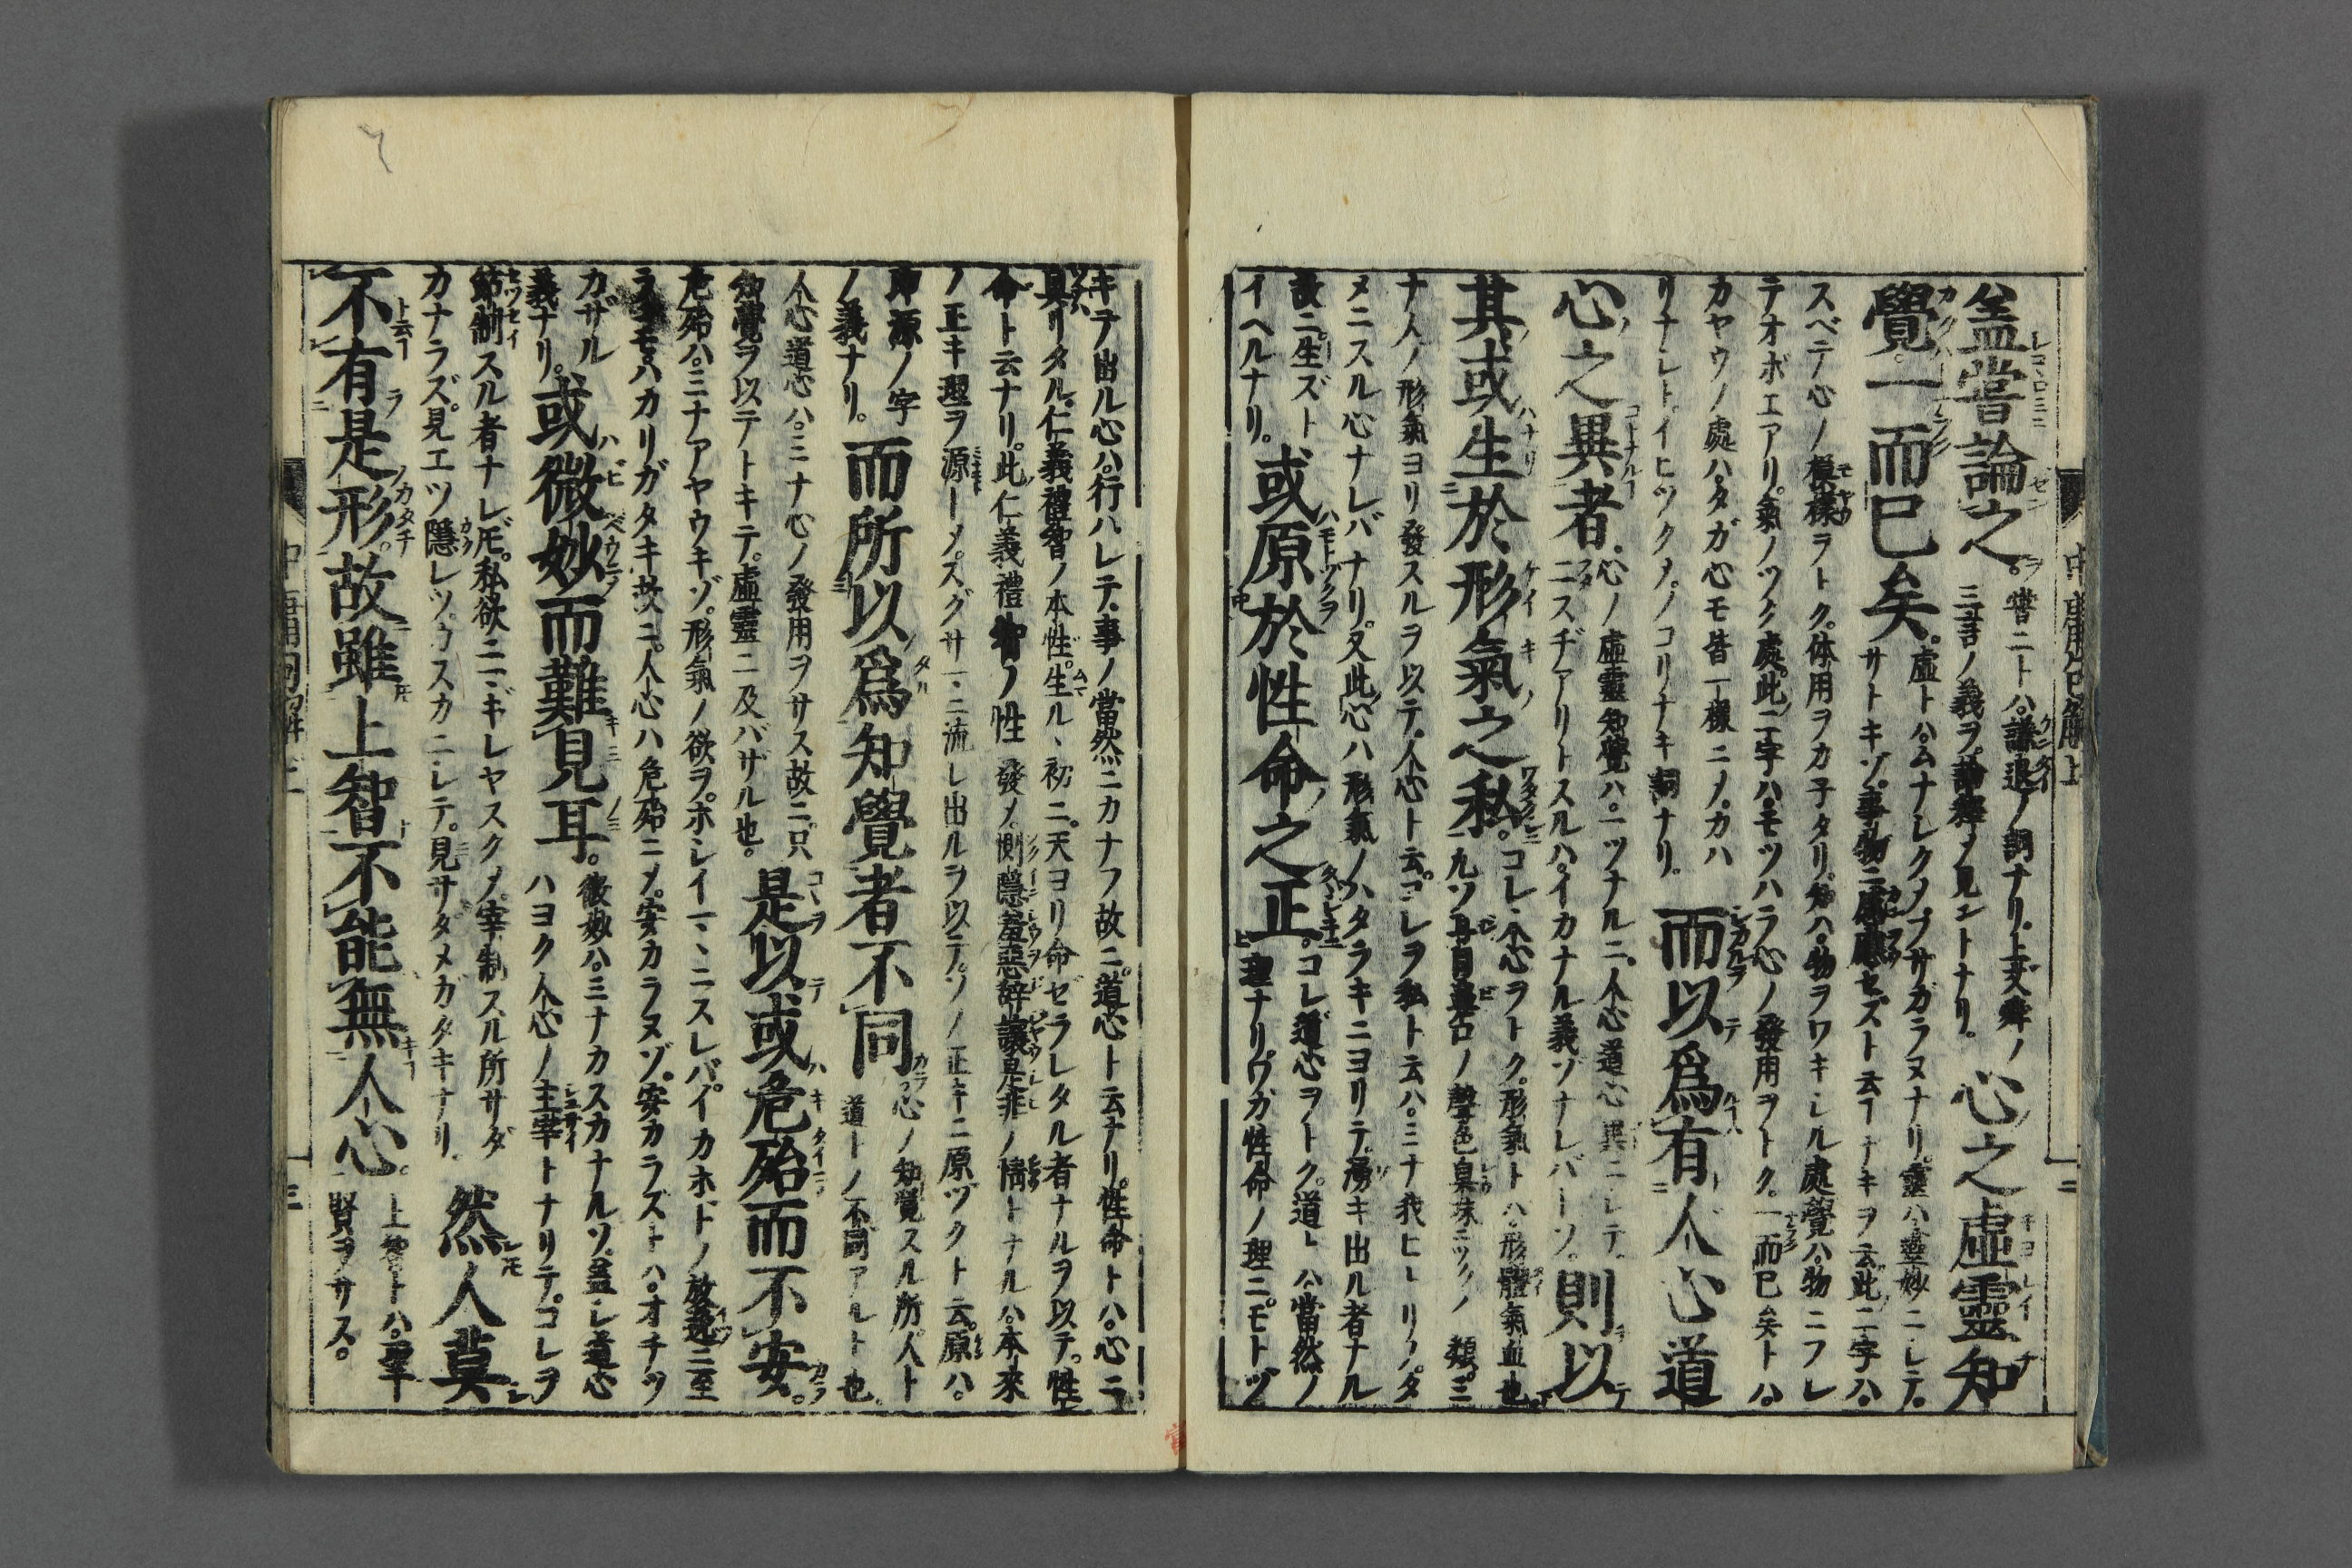 蓋嘗論之。嘗ニトハ謙退ノ詞ナリ。上文ノ
言ノ義ヲ論釋メ見ントナリ。心之虛靈知
覺。一而已矣。虛トハ。ムナシクメフサガラヌナリ。靈ハ靈妙ニシテ。
サトキゾ。事物ニ感應セズト云フナキヲ云。此二字ハ。
スベテ心ノ模樣ヲトク。体用ヲカ子タリ。知ハ。物ヲワキシル處。覺ハ。物ニフレ
テオボエアリ。氣ノツク處。此二字ハ。モツハラ心ノ發用ヲトク。一而已矣トハ。
カヤウノ處ハ。タガ心モ皆一樣ニメ。カハ
リナシト。イヒツクメ。ノコリナキ詞ナリ。而以爲有人心道
心之異者。心ノ虛靈知覺ハ。一ツナルニ。人心道心異ニシテ。
ニスヂアリトスルハ。イカナル義ゾナレバーソ。則以
其或生於形氣之私。コレ人心ヲトク。形氣トハ。形體氣血也。
凡ソ耳目鼻口ノ聲色臭味ニツクノ類。ミ
ナ人ノ形氣ヨリ發スルヲ以テ。人心ト云。コレヲ私ト云ハ。ミナ我ヒトリノタ
メニスル心ナレバナリ。又此心ハ形氣ノハタラキニヨリテ。湧キ出ル者ナル
故ニ。生ズト
イヘルナリ。或原於性命之正。コレ道心ヲトク。道トハ當然ノ
理ナリ。ワガ性命ノ理ニ。モトヅ
キテ出ル心ハ。行ハレテ。事ノ當然ニカナフ故ニ。道心ト云ナリ。性命トハ。心ニ
具リタル。仁義禮智ノ本性。生ルヽ初ニ。天ヨリ命ゼラレタル者ナルヲ以テ。性
命ト云ナリ。此仁義禮智ノ性發メ。惻隱羞惡辭讓是非ノ情トナルハ。本來
ノ正キ理ヲ源トメ。スグサマニ流レ出ルヲ以テ。ソノ正キニ原ヅクト云。原ハ。
即源ノ字
ノ義ナリ。而所以爲知覺者不同心ノ知覺スル所。人ト
道トノ不同アルト也。
人心道心ハ。ミナ心ノ發用ヲサス故ニ。只
知覺ヲ以テトキテ。虛靈ニ及バザル也。是以或危殆而不安。
危殆ハ。ミナアヤウキゾ。形氣ノ欲ヲ。ホシイマヽニスレバ。イカホドノ放逸ニ至
ラ モ。ハカリガタキ故ニ。人心ハ危殆ニメ。安カラヌゾ。安カラズトハ。オチツ
カザル
義ナリ。或微妙而難見耳。微妙ハ。ミナカスカナルソ。蓋シ道心
ハヨク人心ノ主宰トナリテ。コレヲ
節制スル者ナレ𪜈。私欲ニマギレヤスクメ。宰制スル所サダ
カナラズ。見エツ隱レツ。ウスカニシテ。見サダメガタキナリ。然人莫
不有是形。故雖上智不能無人心。上智トハ。聖
賢ヲサス。
中庸 解上
二
三